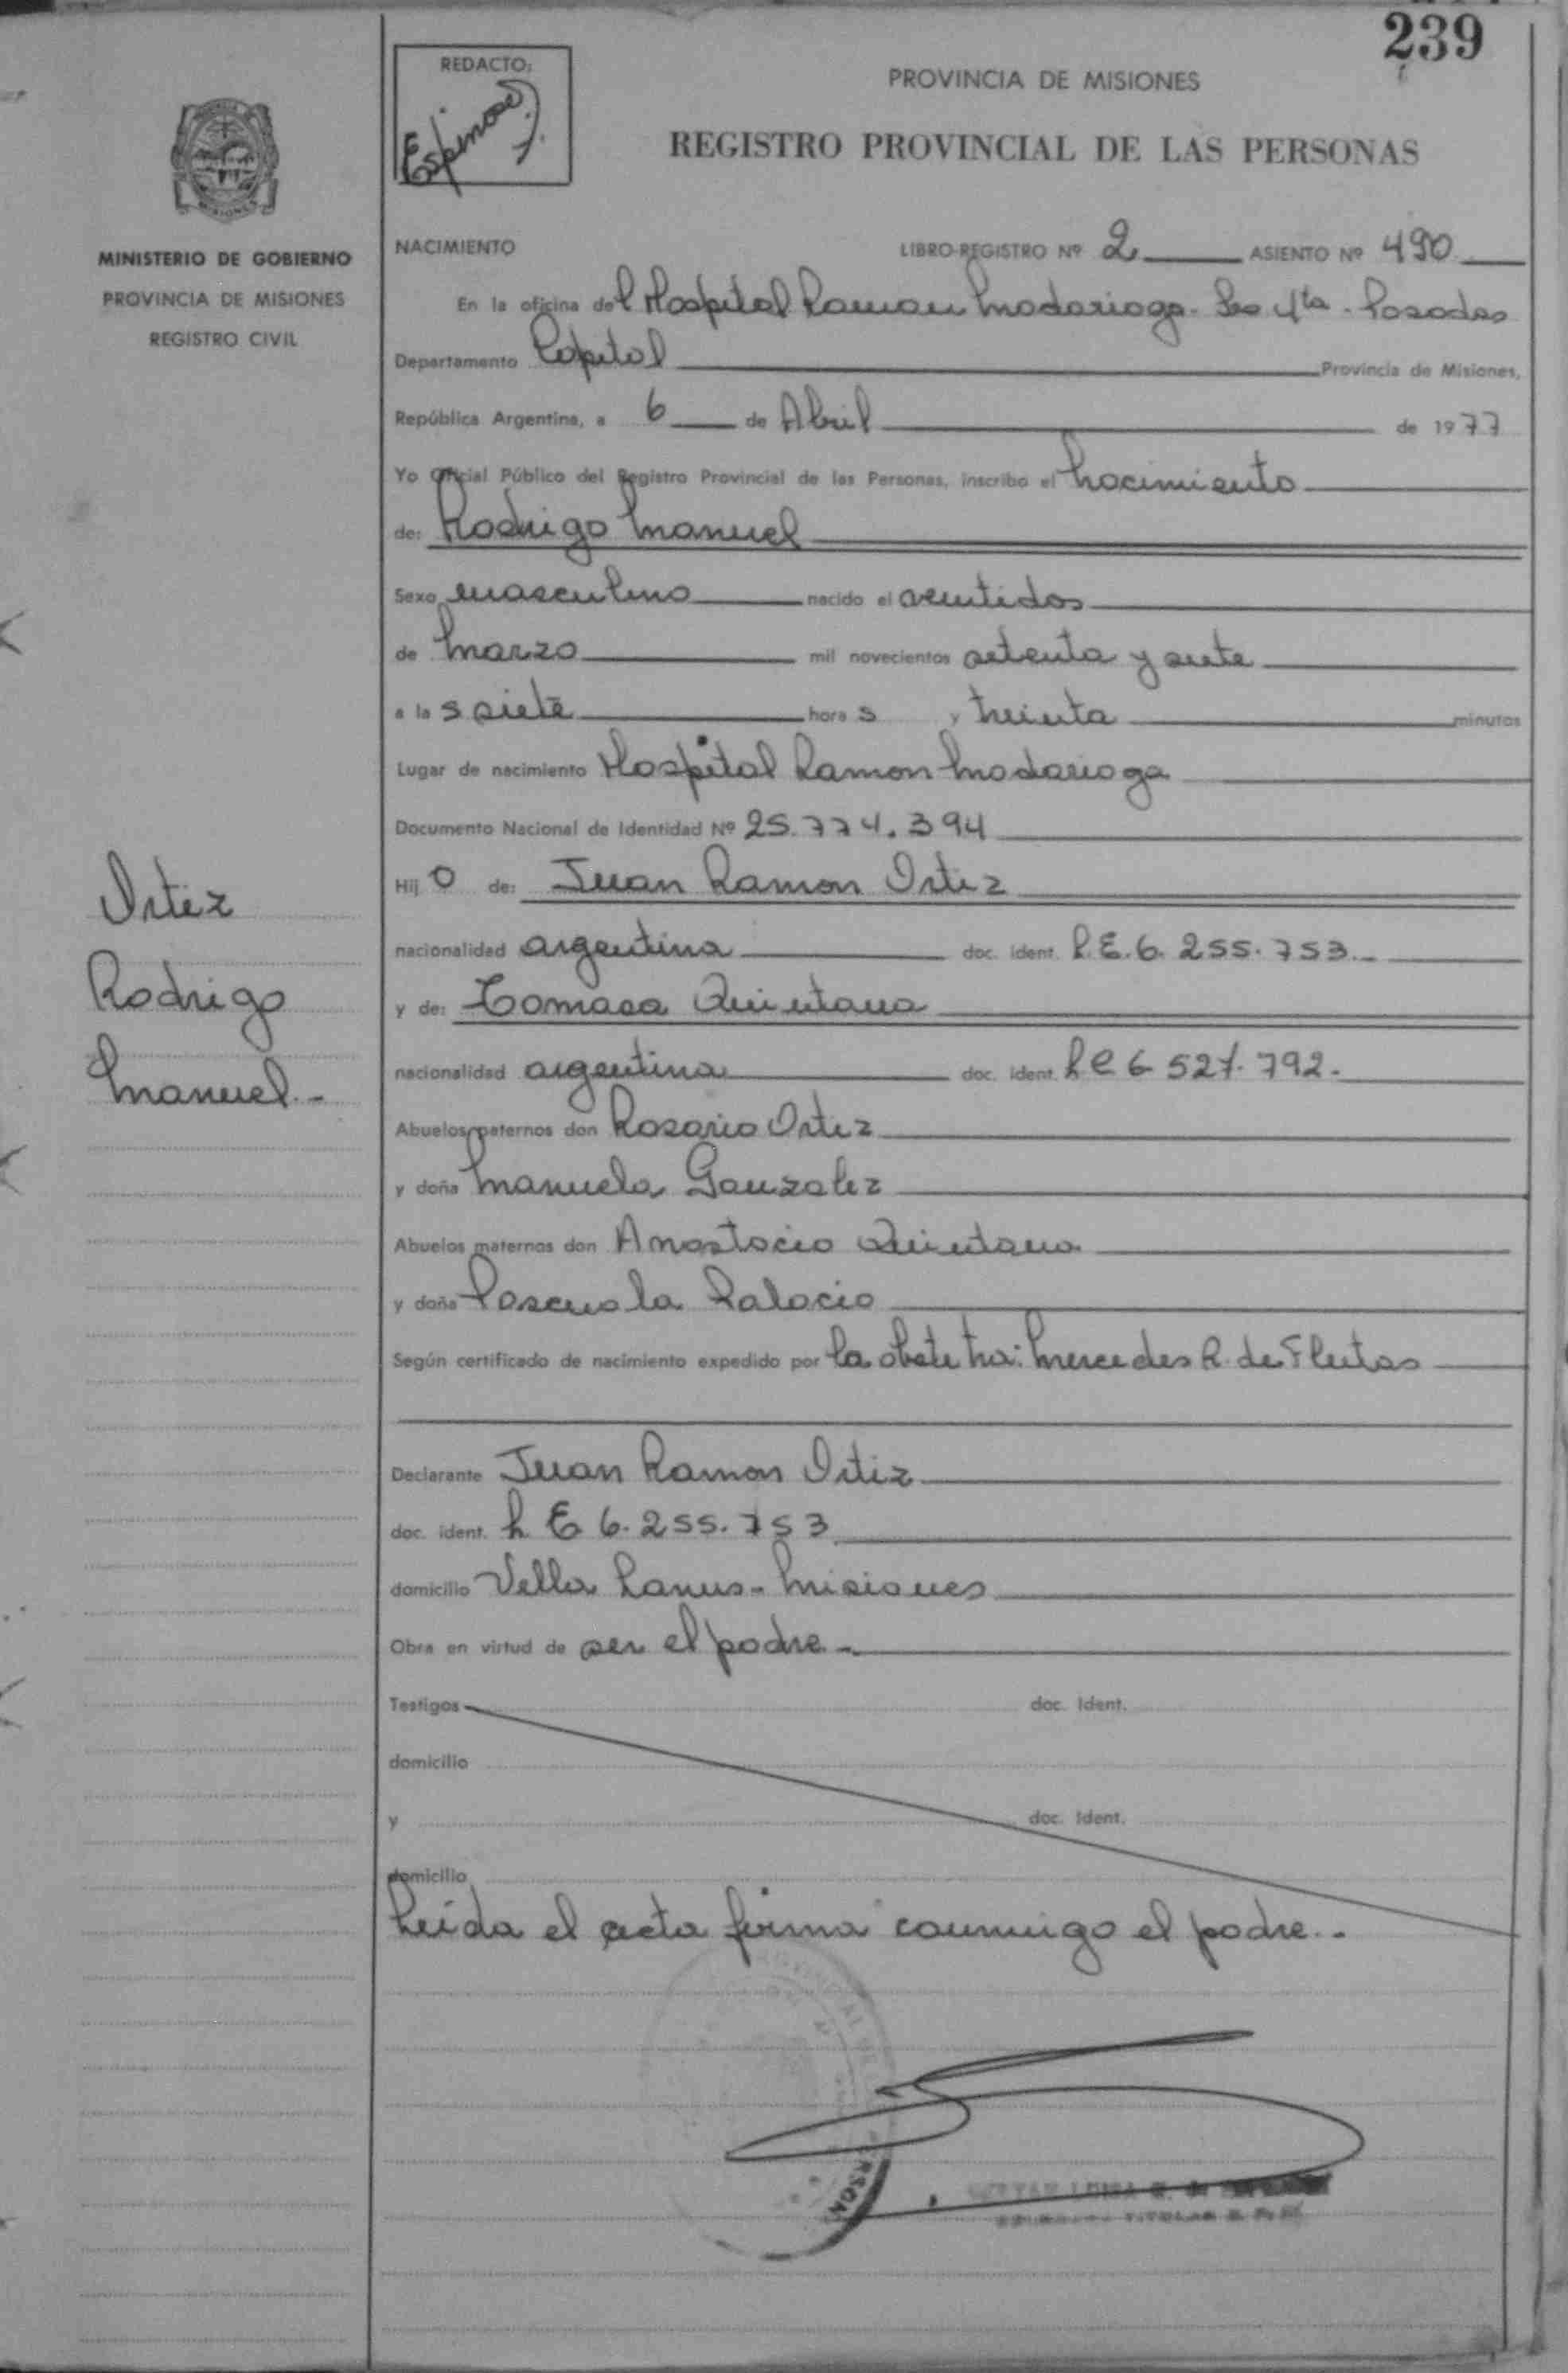 239
REDACTO:
Espinosa
PROVINCIA DE MISIONES
REGISTRO PROVINCIAL DE LAS PERSONAS
MISIONES
MINISTERIO DE GOBIERNO
PROVINCIA DE MISIONES
REGISTRO CIVIL
NACIMIENTO LIBRO-REGISTRO Nº 2 ASIENTO Nº 490
En la oficina del Hospital Ramon Madariaga - Sec 4ta - Posadas
Departamento Capital Provincia de Misiones,
República Argentina, a 6 de Abril de 1977
Yo Oficial Público del Registro Provincial de las Personas, inscribo el Nacimiento
de: Rodrigo Manuel
Sexo masculino nacido el veintidos
de Marzo mil novecientos setenta y siete
a las siete horas y treinta minutos
Lugar de nacimiento Hospital Ramon Madariaga
Documento Nacional de Identidad Nº 25.774.394
Hijo de: Juan Ramon Ortiz
nacionalidad argentina doc. ident. L.E. 6.255.753.-
y de: Tomasa Quintana
nacionalidad argentina doc. ident. LC 6 527.792.-
Abuelos paternos don Rosario Ortiz
y doña Manuela Gonzalez
Abuelos maternos don Anastacio Quintana
y doña Pascuala Palacio
Según certificado de nacimiento expedido por la obstetra: Mercedes R. de Fleitas
Declarante Juan Ramon Ortiz
doc. ident. L E 6.255.753
domicilio Villa Lanus - Misiones
Obra en virtud de ser el padre.-
Testigos doc. Ident.
domicilio
y doc. Ident.
domicilio
Leida el acta firma conmigo el padre.-
Ortiz
Rodrigo
Manuel.-